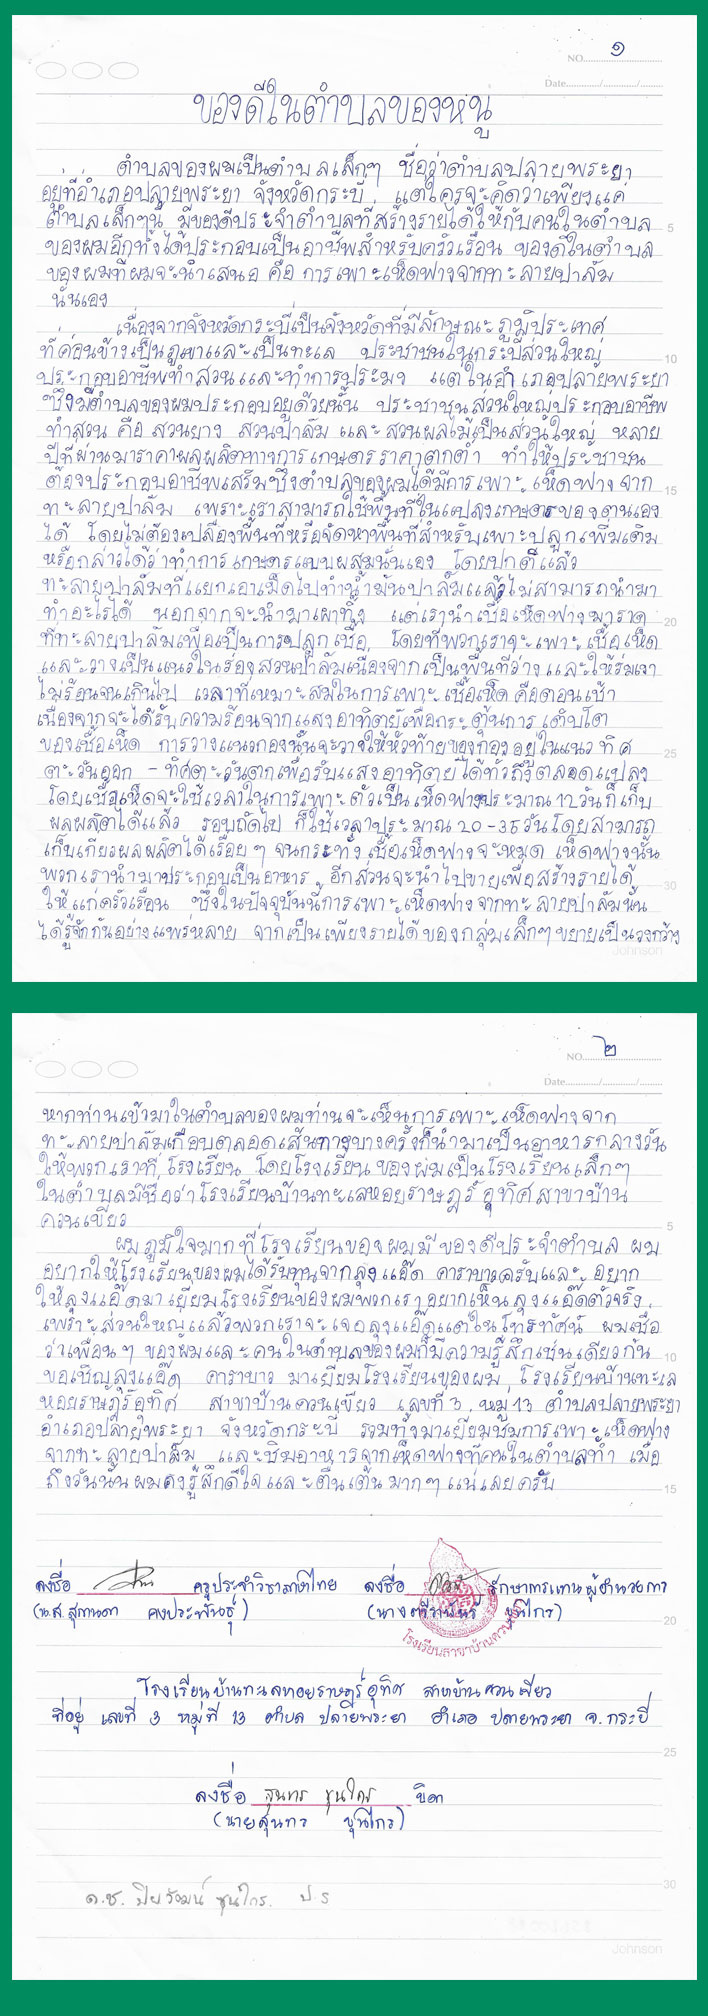 NO. ๑
Date
ของดีในตำบลของหนู
ตำบลของผมเป็นตำบลเล็กๆ ชื่อว่าตำบลปลายพระยา
อยู่ที่อำเภอปลายพระยา จังหวัดกระบี่ แต่ใครจะคิดว่าเพียงแค่
ตำบลเล็กๆนี้ มีของดีประจำตำบลที่สร้างรายได้ให้กับคนในตำบล
ของผมอีกทั้งได้ประกอบเป็นอาชีพสำหรับครัวเรือน ของดีในตำบล
ของผมที่ผมจะนำเสนอ คือ การเพาะเห็ดฟางจากทะลายปาล์ม
นั่นเอง
เนื่องจากจังหวัดกระบี่เป็นจังหวัดที่มีลักษณะภูมิประเทศ
ที่ค่อนข้างเป็นภูเขาและเป็นทะเล ประชาชนในกระบี่ส่วนใหญ่
ประกอบอาชีพทำสวนและทำการประมง แต่ในอำเภอปลายพระยา
ซึ่งมีตำบลของผมประกอบอยู่ด้วยนั้น ประชาชนส่วนใหญ่ประกอบอาชีพ
ทำสวน คือ สวนยาง สวนปาล์ม และสวนผลไม้เป็นส่วนใหญ่ หลาย
ปีที่ผ่านมาราคาผลผลิตทางการเกษตรราคาตกต่ำ ทำให้ประชาชน
ต้องประกอบอาชีพเสริมซึ่งตำบลของผมได้มีการเพาะเห็ดฟางจาก
ทะลายปาล์ม เพราะเราสามารถใช้พื้นที่ในแปลงเกษตรของตนเอง
ได้ โดยไม่ต้องเปลืองพื้นที่หรือจัดหาพื้นที่สำหรับเพาะปลูกเพิ่มเติม
หรือกล่าวได้ว่าทำการเกษตรแบบผสมนั่นเอง โดยปกติแล้ว
ทะลายปาล์มที่แยกเอาเม็ดไปทำน้ำมันปาล์มแล้วไม่สามารถนำมา
ทำอะไรได้ นอกจากจะนำมาเผาทิ้ง แต่เรานำเชื้อเห็ดฟางมาราด
ที่ทะลายปาล์มเพื่อเป็นการปลูกเชื้อ โดยที่พวกเราจะเพาะเชื้อเห็ด
และวางเป็นแนวในร่องสวนปาล์มเนื่องจากเป็นพื้นที่ว่างและให้ร่มเงา
ไม่ร้อนจนเกินไป เวลาที่เหมาะสมในการเพาะเชื้อเห็ดคือตอนเช้า
เนื่องจากจะได้รับความร้อนจากแสงอาทิตย์เพื่อกระตุ้นการเติบโต
ของเชื้อเห็ด การวางแนวกองนั้นจะวางให้หัวท้ายของกองอยู่ในแนวทิศ
ตะวันออก - ทิศตะวันตกเพื่อรับแสงอาทิตย์ได้ทั่วถึงตลอดแปลง
โดยเชื้อเห็ดจะใช้เวลาในการเพาะตัวเป็นเห็ดฟางประมาณ 12 วันก็เก็บ
ผลผลิตได้แล้ว รอบถัดไป ก็ใช้เวลาประมาณ 20-35 วันโดยสามารถ
เก็บเกี่ยวผลผลิตได้เรื่อยๆจนกระทั่งเชื้อเห็ดฟางจะหมด เห็ดฟางนั้น
พวกเรานำมาประกอบเป็นอาหาร อีกส่วนจะนำไปขายเพื่อสร้างรายได้
ให้แก่ครัวเรือน ซึ่งในปัจจุบันนี้การเพาะเห็ดฟางจากทะลายปาล์มนั้น
ได้รู้จักกันอย่างแพร่หลาย จากเป็นเพียงรายได้ของกลุ่มเล็กๆขยายเป็นวงกว้าง
Johnson
NO. ๒
Date
หากท่านเข้ามาในตำบลของผมท่านจะเห็นการเพาะเห็ดฟางจาก
ทะลายปาล์มเกือบตลอดเส้นทางบางครั้งก็นำมาเป็นอาหารกลางวัน
ให้พวกเราที่โรงเรียน โดยโรงเรียนของผมเป็นโรงเรียนเล็กๆ
ในตำบลมีชื่อว่าโรงเรียนบ้านทะเลหอยราษฎร์อุทิศสาขาบ้าน
ควนเขียว
ผมภูมิใจมากที่โรงเรียนของผมมีของดีประจำตำบล ผม
อยากให้โรงเรียนของผมได้รับทุนจากลุงแอ๊ด คาราบาวครับและอยาก
ให้ลุงแอ๊ดมาเยี่ยมโรงเรียนของผมพวกเราอยากเห็นลุงแอ๊ดตัวจริง
เพราะส่วนใหญ่แล้วพวกเราจะเจอลุงแอ๊ดแต่ในโทรทัศน์ ผมเชื่อ
ว่าเพื่อนๆ ของผมและคนในตำบลของผมก็มีความรู้สึกเช่นเดียวกัน
ขอเชิญลุงแอ๊ด คาราบาว มาเยี่ยมโรงเรียนของผม โรงเรียนบ้านทะเล
หอยราษฎร์อุทิศ สาขาบ้านควนเขียว เลขที่ 3 หมู่ 13 ตำบลปลายพระยา
อำเภอปลายพระยา จังหวัดกระบี่ รวมทั้งมาเยี่ยมชมการเพาะเห็ดฟาง
จากทะลายปาล์ม และชิมอาหารจากเห็ดฟางที่คนในตำบลทำ เมื่อ
ถึงวันนั้นผมคงรู้สึกดีใจและตื่นเต้นมากๆแน่เลยครับ
ลงชื่อ ครูประจำวิชาภาษาไทย ลงชื่อ รักษาการแทนผู้อำนวยการ
(น.ส.สุกานดา คงประพันธุ์) (นาง ขุนไกร)
โรงเรียนสาขาบ้านควนเขียว
โรงเรียนบ้านทะเลหอยราษฎร์อุทิศ สาขาบ้านควนเขียว
ที่อยู่ เลขที่ 3 หมู่ที่ 13 ตำบล ปลายพระยา อำเภอ ปลายพระยา จ.กระบี่
ลงชื่อ สุนทร ขุนไกร บิดา
(นายสุนทร ขุนไกร)
ด.ช. ปิยวัฒน์ ขุนไกร. ป.5
Johnson